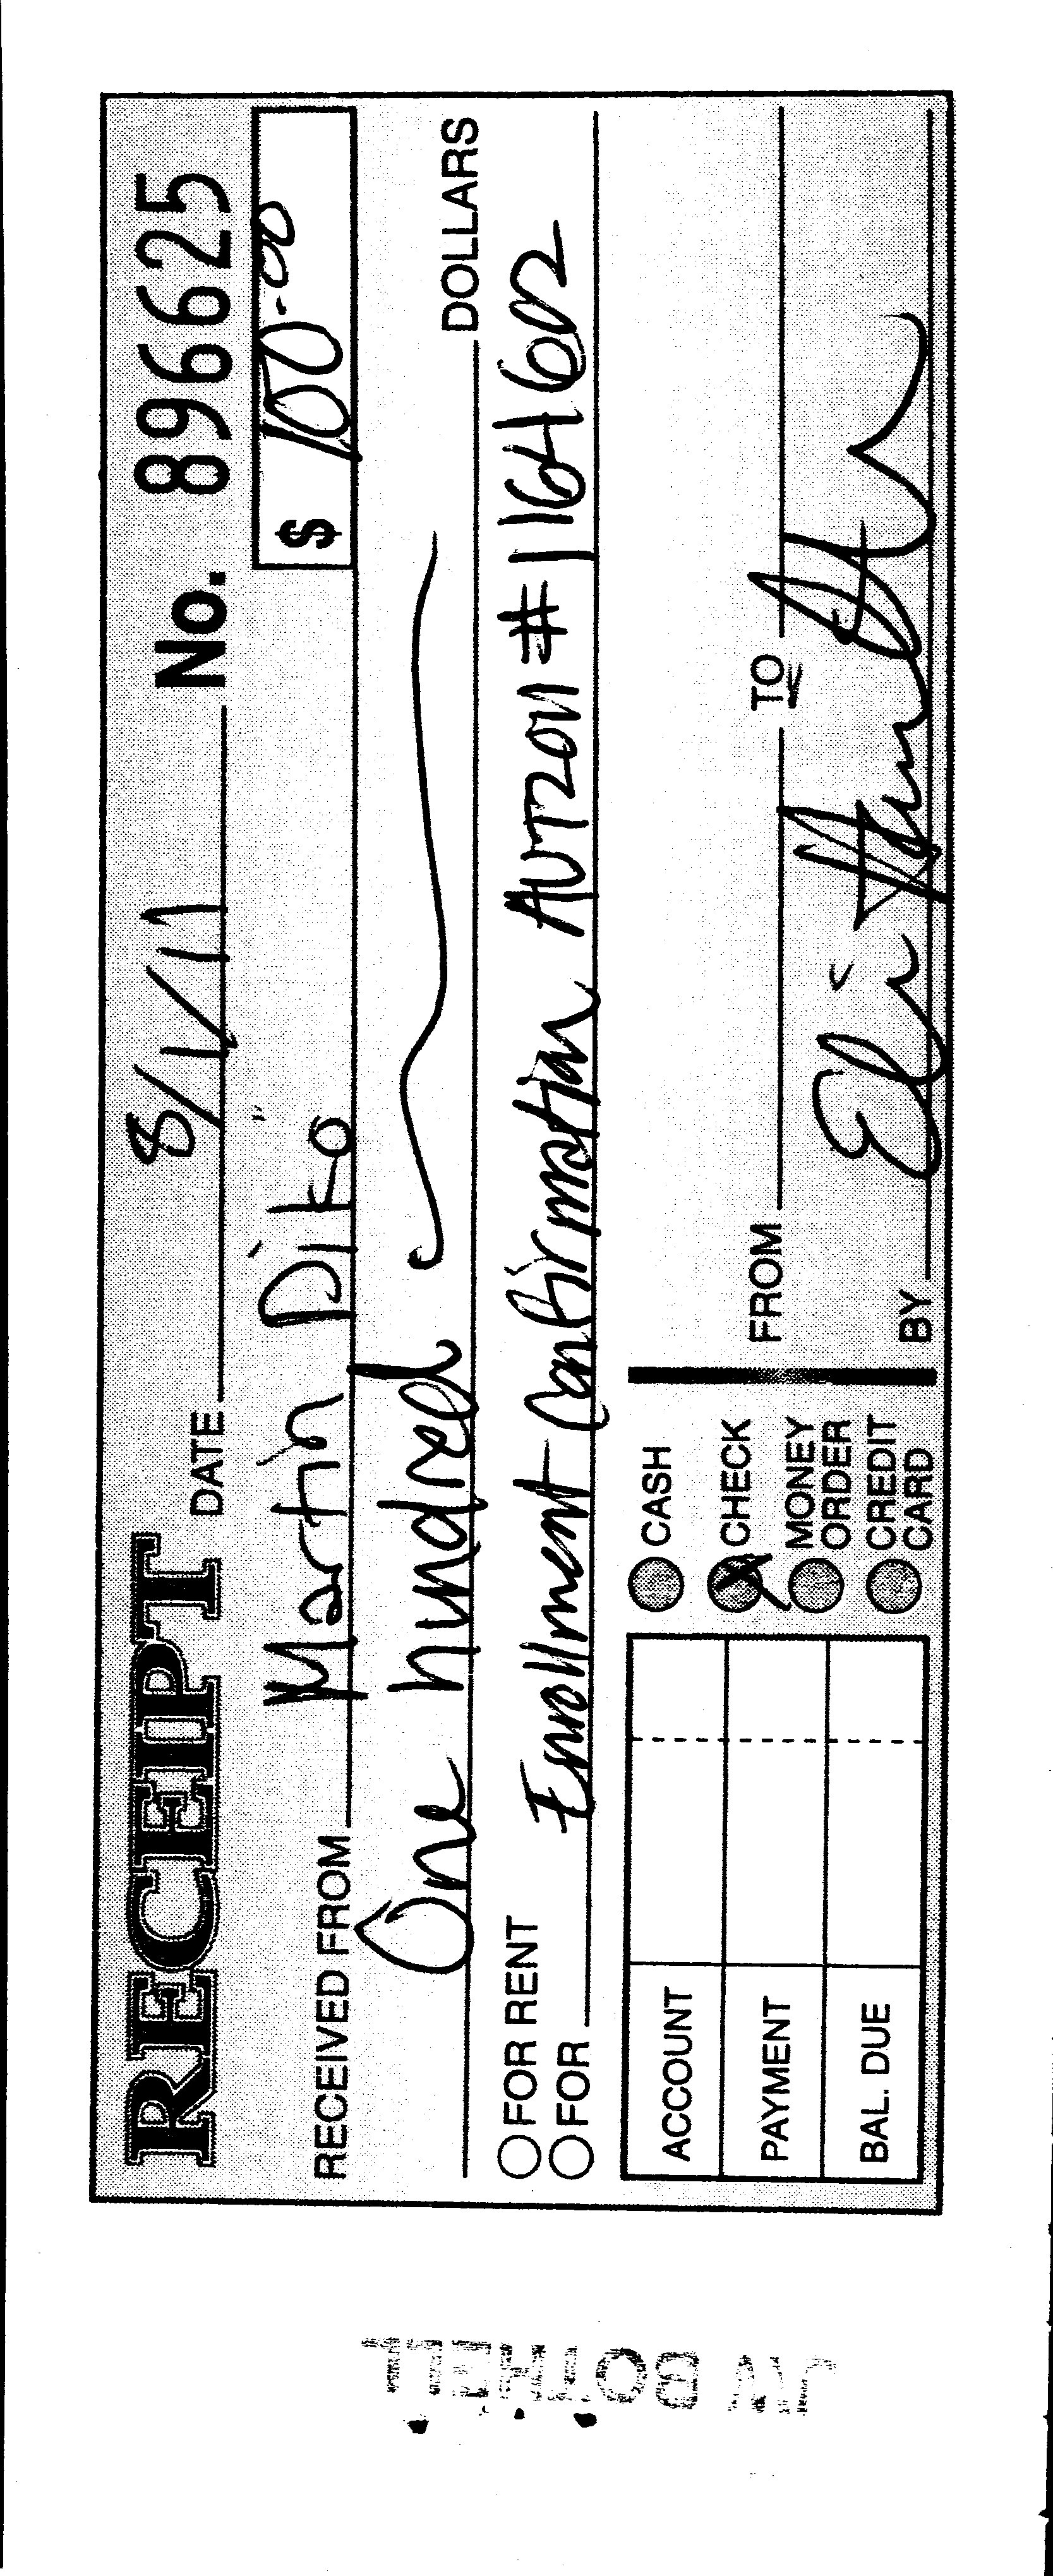 RECEIPT DATE 8/1/11 No. 896625
RECEIVED FROM Martin Dito $ 100.00
One hundred DOLLARS
FOR RENT
FOR Enrollment Confirmation AUT2011 #116402
ACCOUNT
PAYMENT
BAL. DUE
CASH
CHECK
MONEY ORDER
CREDIT CARD
FROM TO
BY
BOTHELL